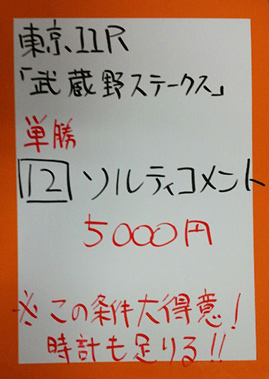 東京11R
「武蔵野ステークス」
単勝
12 ソルティコメント
5000円
※この条件大得意!
時計も足りる!!